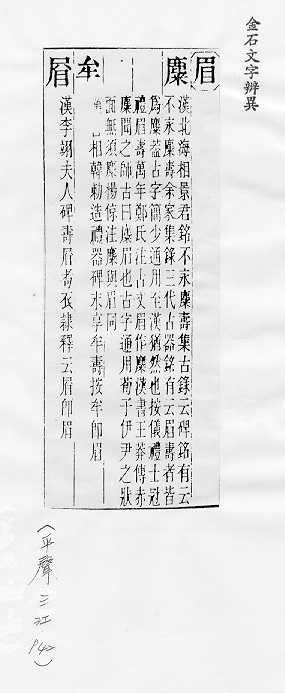 金石文字辨異
眉
麋
漢北海相景君銘不永麋壽集古錄云碑銘有云
不永麋壽余家集錄三代古器銘有云眉壽者皆
為麋蓋古字簡少通用至漢猶然也按儀禮士冠
禮眉壽萬年鄭氏注古文眉作麋漢書王莽傳赤
麋聞之師古曰麋眉也古字通用荀子伊尹之狀
面無須麋楊倞注麋與眉同
牟
相韓勑造禮器碑永享牟壽按牟即眉
睂
漢李翊夫人碑壽睂耇衣隸釋云睂即眉
(平聲 三江 P42)